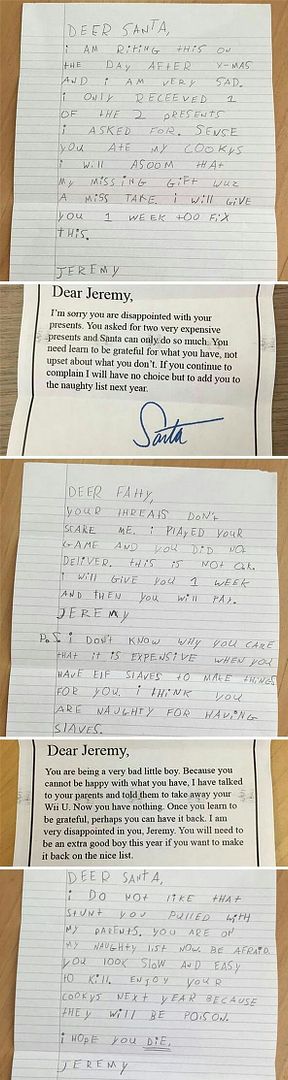 DEER SANTA,
i AM RiTiNG THiS ON
THE DAY AFTER X-MAS
AND i AM VERY SAD.
i ONLY RECEEVED 1
OF THE 2 PRESENTS
i ASKED FOR. SENSE
YOU ATE MY COOKYS
i WiLL ASOOM THAT
MY MiSSiNG GiFT WUZ
A MiSS TAKE. i WiLL GiVE
YOU 1 WEEK TOO FiX
THiS.
JEREMY
Dear Jeremy,
I'm sorry you are disappointed with your
presents. You asked for two very expensive
presents and Santa can only do so much. You
need learn to be grateful for what you have, not
upset about what you don't. If you continue to
complain I will have no choice but to add you to
the naughty list next year.
Santa
DEER FATTY,
YOUR THREATS DON'T
SCARE ME. i PLAYED YOUR
GAME AND YOU DiD NOT
DELiVER. THiS iS NOT OK.
i WiLL GiVE YOU 1 WEEK
AND THEN YOU WiLL PAY.
JEREMY
P.S i DON'T KNOW WHY YOU CARE
THAT iT iS EXPENSiVE WHEN YOU
HAVE ELF SLAVES TO MAKE THiNGS
FOR YOU. i THiNK YOU
ARE NAUGHTY FOR HAViNG
SLAVES.
Dear Jeremy,
You are being a very bad little boy. Because you
cannot be happy with what you have, I have talked
to your parents and told them to take away your
Wii U. Now you have nothing. Once you learn to
be grateful, perhaps you can have it back. I am
very disappointed in you, Jeremy. You will need to
be an extra good boy this year if you want to make
it back on the nice list.
DEER SANTA,
i DO NOT LiKE THAT
STUNT YOU PULLED WiTH
MY PARENTS. YOU ARE ON
MY NAUGHTY LiST NOW. BE AFRAiD.
YOU LOOK SLOW AND EASY
TO KiLL. ENJOY YOUR
COOKYS NEXT YEAR BECAUSE
THEY WiLL BE POiSON.
i HOPE YOU DiE.
JEREMY